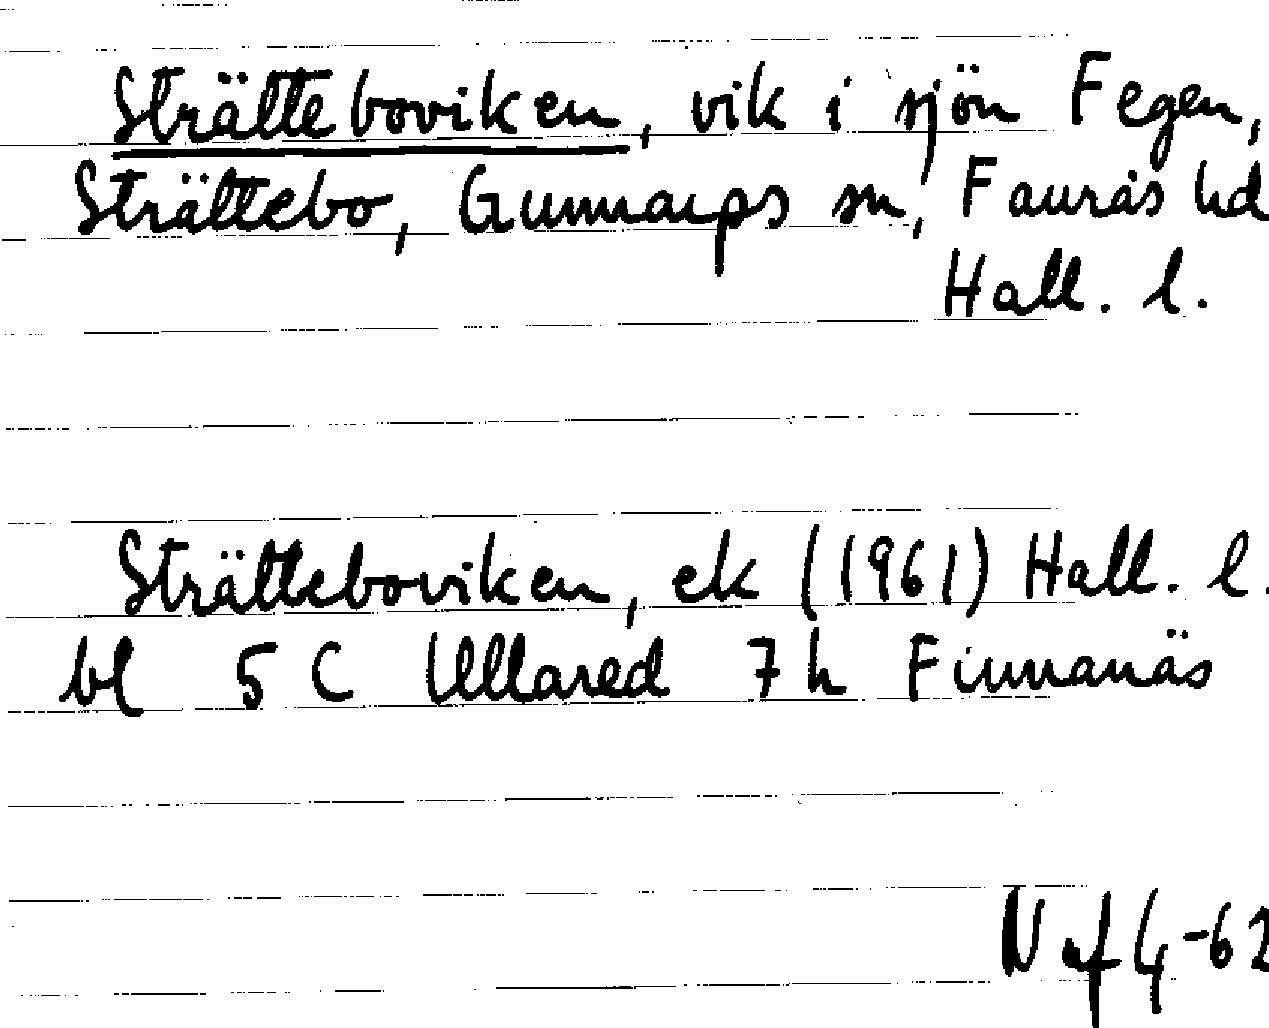 Strätteboviken, vik i sjön Fegen,
Strättebo, Gunnarps sn, Faurås hd
Hall. l.
Strätteboviken, ek (1961) Hall. l.
bl 5 C Ullared 7 h Finnanäs
Naf 4-62